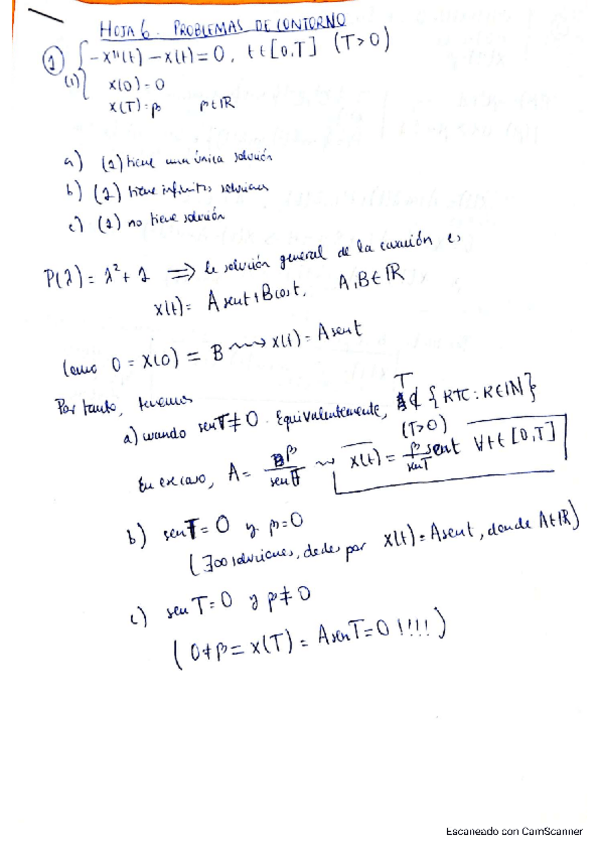 HOJA 6. PROBLEMAS DE CONTORNO
① (1) { -x''(t) - x(t) = 0, t∈[0,T] (T>0)
x(0) = 0
x(T) = β β∈ℝ
a) (1) tiene una única solución
b) (1) tiene infinitas soluciones
c) (1) no tiene solución
P(λ) = λ² + 1 ⟹ la solución general de la ecuación es
x(t) = A sent + B cost, A,B∈ℝ
Como 0 = x(0) = B ⇝ x(t) = A sent
Por tanto, tenemos
a) cuando senT ≠ 0. Equivalentemente, T ∉ {kπ : k∈ℕ}
(T>0)
En ese caso, A = β/senT ⇝ x(t) = β/senT sent ∀t∈[0,T]
b) senT = 0 y β=0
(∃∞ soluciones, dadas por x(t) = A sent, donde A∈ℝ)
c) senT = 0 y β≠0
(0≠β = x(T) = A senT = 0 !!!!)
Escaneado con CamScanner